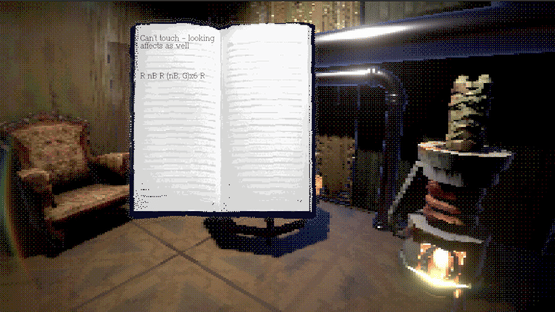 Can't touch – looking
affects as well
R nB R (nB, G)x6 R